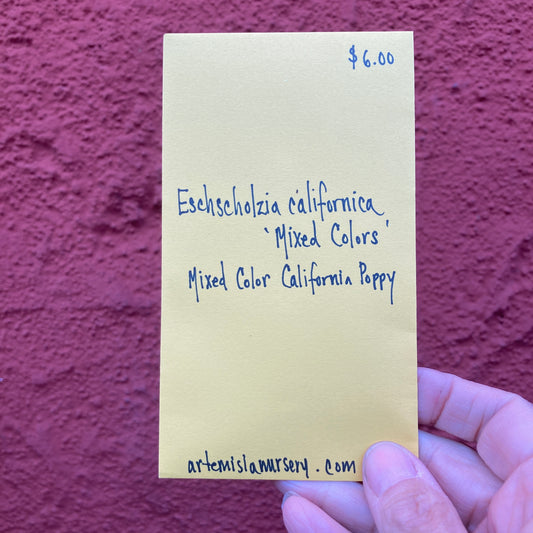 $6.00
Eschscholzia californica
'Mixed Colors'
Mixed Color California Poppy
artemisianursery.com